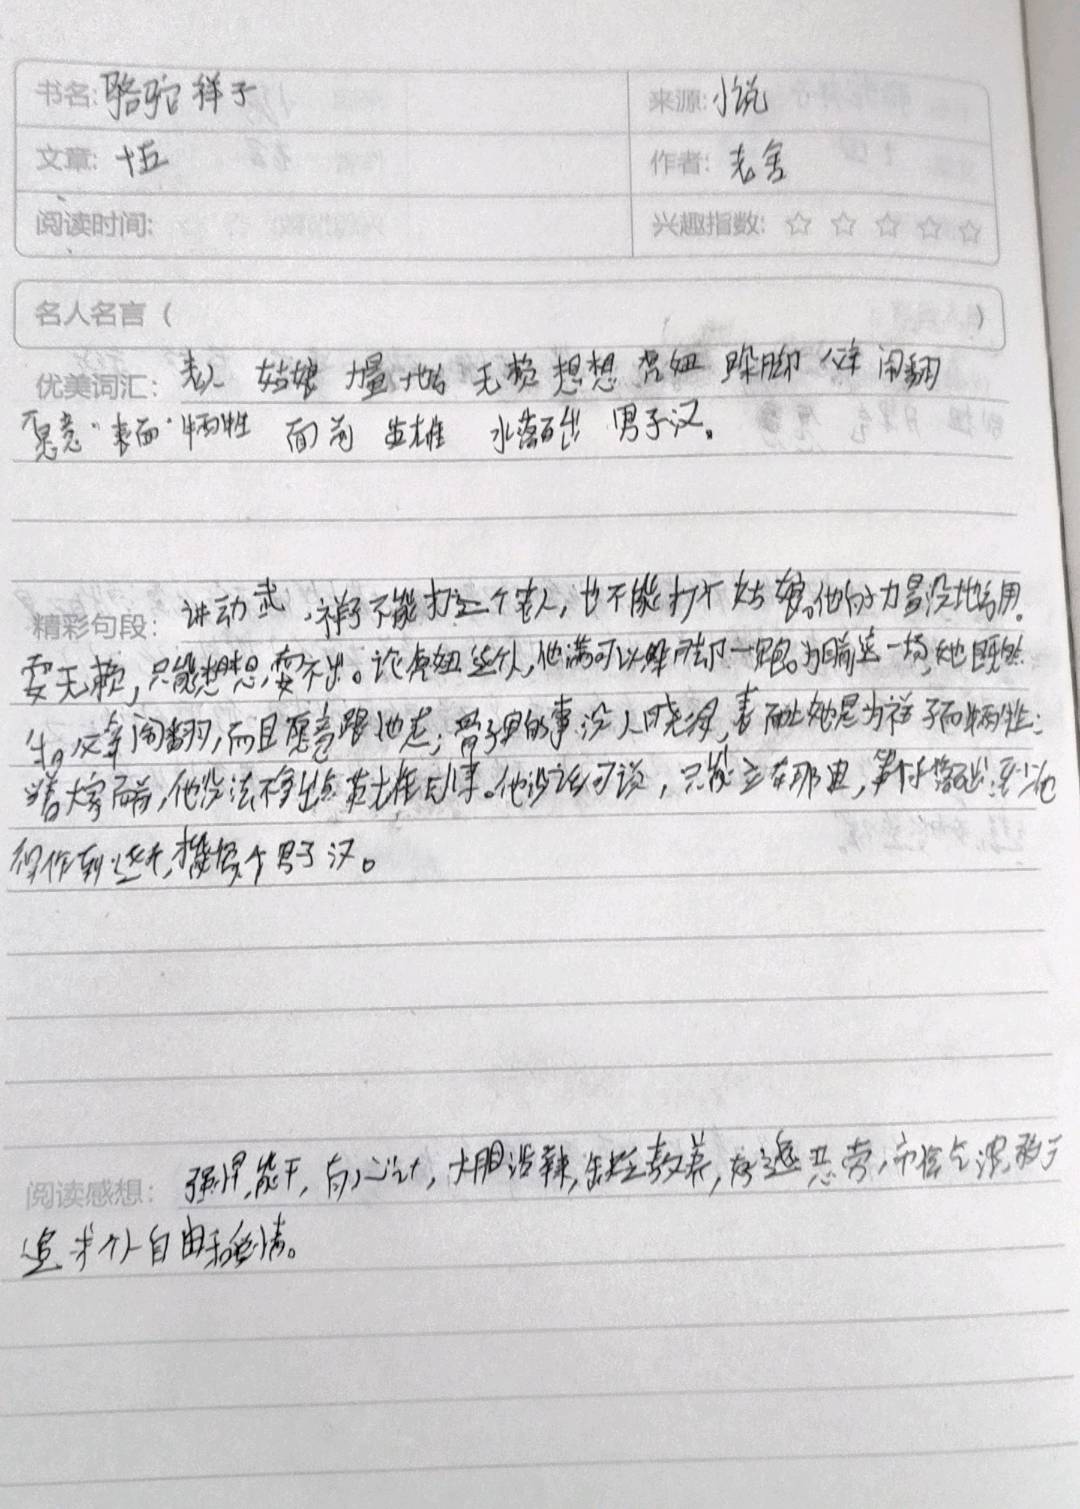 书名: 骆驼祥子 来源: 小说
文章: 十五 作者: 老舍
阅读时间: 兴趣指数: ☆ ☆ ☆ ☆ ☆
名人名言 ( )
优美词汇: 老人 姑娘 力量 地方 无赖 想想 虎妞 跺脚 父亲 闹翻
愿意 表面 牺牲 面前 英雄 水落石出 男子汉。
精彩句段: 讲动武,祥子不能打三个老人,也不能打个姑娘。他的力量没地方用。
耍无赖,只能想想,耍不出。论虎妞这个人,他满可以跺脚一跑。为眼前这一场,她既然
和父亲闹翻,而且愿意跟他走;骨子里的事没人晓得,表面上她是为祥子而牺牲;
当着大家面前,他没法不拿出点英雄气儿来。他没话可说,只能立在那里,等个水落石出;至少他
得作到这个,才能像个男子汉。
阅读感想: 强悍,能干,有心计,大胆泼辣,缺乏教养,好逸恶劳,市俗气浓,敢于
追求个人自由和爱情。